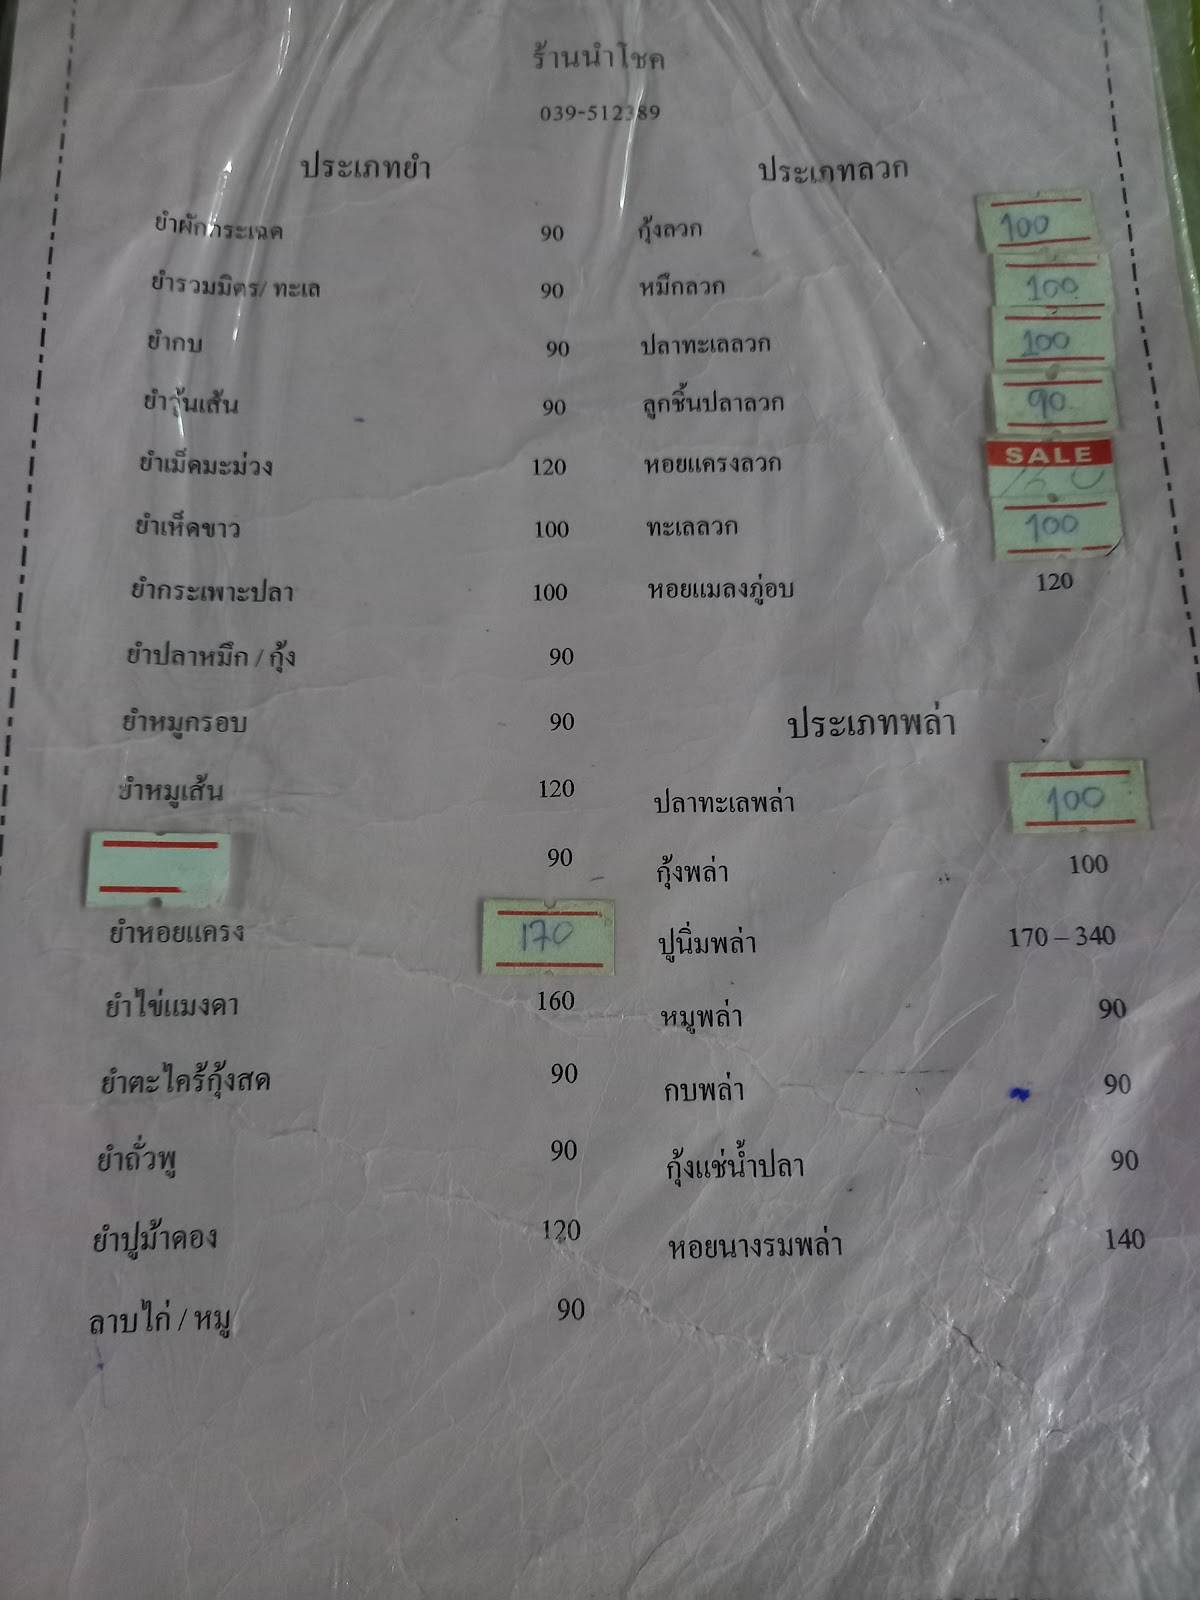 ร้านนำโชค
039-512389
ประเภทยำ
ยำผักกระเฉด 90
ยำรวมมิตร/ ทะเล 90
ยำกบ 90
ยำวุ้นเส้น 90
ยำเม็ดมะม่วง 120
ยำเห็ดขาว 100
ยำกระเพาะปลา 100
ยำปลาหมึก / กุ้ง 90
ยำหมูกรอบ 90
ยำหมูเส้น 120
90
ยำหอยแครง 170
ยำไข่แมงดา 160
ยำตะไคร้กุ้งสด 90
ยำถั่วพู 90
ยำปูม้าดอง 120
ลาบไก่ / หมู 90
ประเภทลวก
กุ้งลวก 100
หมึกลวก 100
ปลาทะเลลวก 100
ลูกชิ้นปลาลวก 90
หอยแครงลวก SALE
ทะเลลวก 100
หอยแมลงภู่อบ 120
ประเภทพล่า
ปลาทะเลพล่า 100
กุ้งพล่า 100
ปูนิ่มพล่า 170 – 340
หมูพล่า 90
กบพล่า 90
กุ้งแช่น้ำปลา 90
หอยนางรมพล่า 140